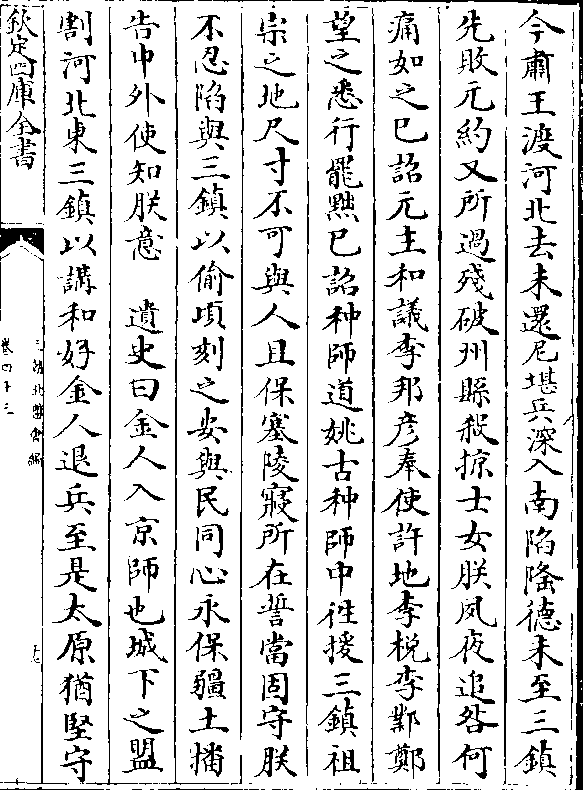 今肅王渡河北去未還尼堪兵深入南陷隆德未至三鎮
先敗元約又所過殘破州縣殺掠士女朕夙夜追咎何
痛如之已詔元主和議李邦彦奉使許地李梲李鄴鄭
望之悉行罷黜已詔种師道姚古种師中徃援三鎮祖
宗之地尺寸不可與人且保塞陵寢所在誓當固守朕
不忍陷與三鎮以偷頃刻之安與民同心永保疆土播
告中外使知朕意　遺史曰金人入京師也城下之盟
割河北東三鎮以講和好金人退兵至是太原猶堅守
欽定四庫全書
三朝北盟會編
卷四十三